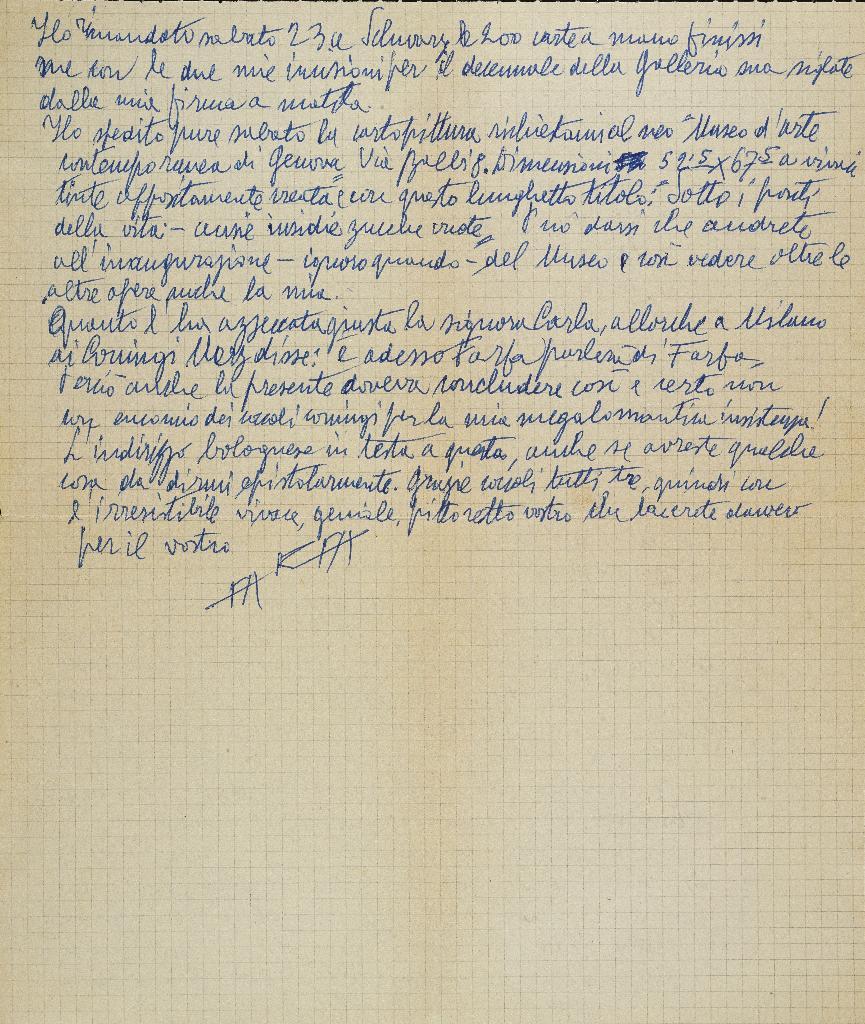 Ho rimandato sabato 23 a Schwarz le 200 carte a mano finissi
me con le due mie incisioni per il decennale della Galleria sua siglate
dalla mia firma a matita.
Ho spedito pure sabato la cartopittura richiestami al neo "Museo d'arte
contemporanea di Genova" Via Balbi 8. Dimensioni 52.5 x 67.5 a vivaci
tinte appositamente creata e con questo lunghetto titolo: "Sotto i ponti
della vita: – ansie insidie zucche vuote". Può darsi che andrete
all'inaugurazione – ignoro quando – del Museo e così vedere oltre le
altre opere anche la mia.
Quanto l'ha azzeccata giusta la signora Carla, allorché a Milano
ai Comingi Marz disse: "e adesso Farfa parlerà di Farfa"
Perciò anche la presente doveva concludere così e certo non
con encomio dei coccoli comingi per la mia megalomantica insistenza!
L'indirizzo bolognese in testa a questa, anche se avreste qualche
cosa da dirmi epistolarmente. Grazie coccoli tutti tre, quindi con
l'irresistibile vivace, geniale, pittoretto vostro che lacerete davvero
per il vostro
FARFA